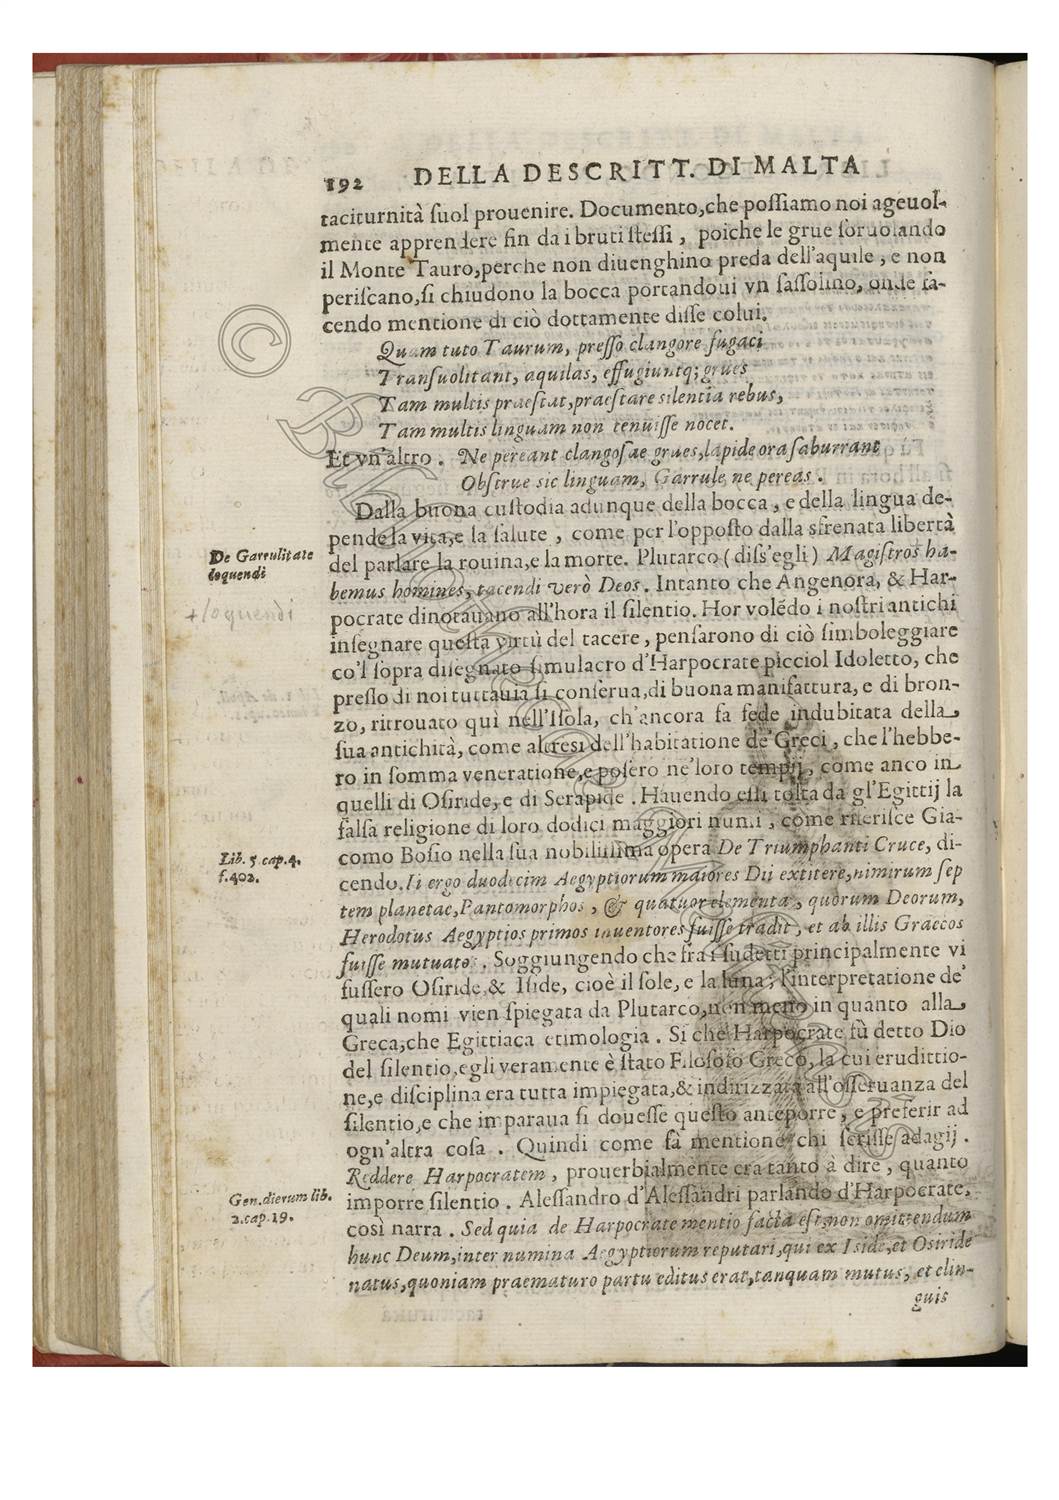 192 DELLA DESCRITT. DI MALTA
taciturnità ſuol prouenire. Documento,che poſſiamo noi ageuol-
mente apprendere fin da i bruti ſteſſi , poiche le grue ſoruolando
il Monte Tauro,perche non diuenghino preda dell'aquile , e non
periſcano,ſi chiudono la bocca portandoui vn ſaſſolino, onde fa-
cendo mentione di ciò dottamente diſſe colui.
Quam tuto Taurum, preſſo clangore fugaci
Tranſuolitant, aquilas, effugiuntq; grues
Tam multis praeſtat,praeſtare silentia rebus,
Tam multis linguam non tenuiſſe nocet.
Et vn altro . Ne pereant clangoſae grues,lapide ora ſaburrant
Obſtrue sic linguam, Garrule ne pereas .
Dalla buona cuſtodia adunque della bocca , e della lingua de-
pende la vita,e la ſalute , come per l'oppoſto dalla sfrenata libertà
De Garrulitate
loquendi
del parlare la rouina,e la morte. Plutarco ( diſs'egli ) Magiſtros ha-
bemus homines, tacendi verò Deos . Intanto che Angenora, & Har-
pocrate dinotauano all'hora il ſilentio. Hor volẽdo i noſtri antichi
inſegnare queſta virtù del tacere , penſarono di ciò ſimboleggiare
co'l ſopra diſegnato ſimulacro d'Harpocrate picciol Idoletto, che
preſſo di noi tuttauia ſi conſerua,di buona manifattura, e di bron-
zo, ritrouato quì nell'Iſola, ch'ancora fa fede indubitata della
ſua antichità, come altresì dell'habitatione de' Greci , che l'hebbe-
ro in ſomma veneratione,e poſero ne' loro tempij, come anco in
quelli di Oſiride, e di Serapide . Hauendo eſſi tolta da gl'Egittij la
falſa religione di loro dodici maggiori numi , come riferiſce Gia-
Lib. 5. cap. 4.
f.402.
como Boſio nella ſua nobiliſſima opera De Triumphanti Cruce, di-
cendo. Ii ergo duodecim Aegyptiorum maiores Dii extitere,nimirum ſep
tem planetae,Pantomorphos , & quatuor elementa , quorum Deorum,
Herodotus Aegyptios primos inuentores fuiſſe tradit , et ab illis Graecos
fuiſſe mutuatos . Soggiungendo che fra i ſudetti principalmente vi
fuſſero Oſiride, & Iſide, cioè il ſole, e la luna; l'interpretatione de'
quali nomi vien ſpiegata da Plutarco,non meno in quanto alla
Greca,che Egittiaca etimologia . Si che Harpocrate fù detto Dio
del ſilentio,egli veramente è ſtato Filoſofo Greco, la cui erudittio-
ne,e diſciplina era tutta impiegata,& indirizzata all'oſſeruanza del
ſilentio,e che imparaua ſi doueſſe queſto anteporre , e preferir ad
ogn'altra coſa . Quindi come fà mentione chi ſcriſſe adagij .
Reddere Harpocratem , prouerbialmente era tanto à dire , quanto
Gen.dierum lib.
2.cap.19.
imporre ſilentio . Aleſſandro d'Aleſſandri parlando d'Harpocrate,
così narra . Sed quia de Harpocrate mentio facta eſt,non omittendum
hunc Deum,inter numina Aegyptiorum reputari,qui ex Iside,et Osiride
natus,quoniam praematuro partu editus erat,tanquam mutus, et elin-
guis